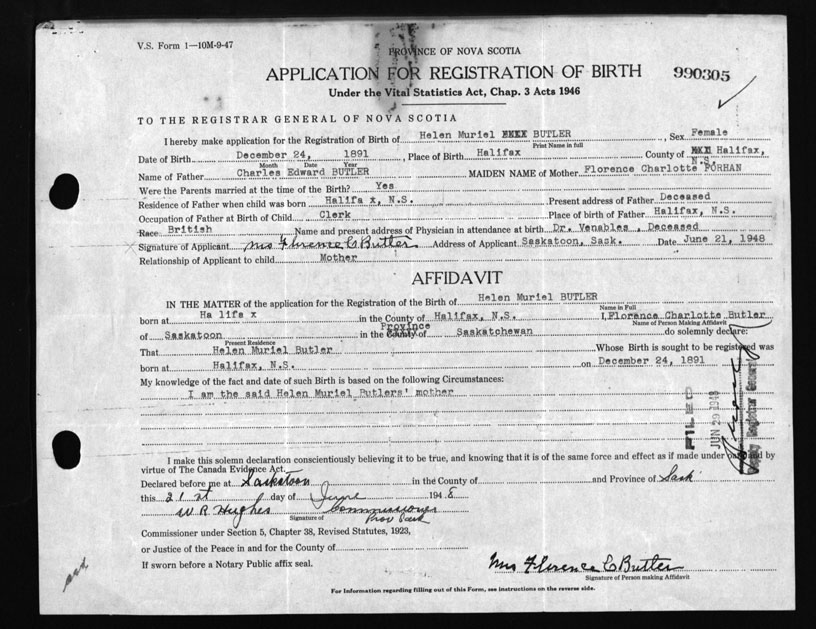 V.S. Form 1—10M-9-47
PROVINCE OF NOVA SCOTIA
APPLICATION FOR REGISTRATION OF BIRTH 990305
Under the Vital Statistics Act, Chap. 3 Acts 1946
TO THE REGISTRAR GENERAL OF NOVA SCOTIA
I hereby make application for the Registration of Birth of Helen Muriel BUTLER, Sex Female
Print Name in full
Date of Birth December 24, 1891, Place of Birth Halifax County of Halifax, N.S.
Month Day Year
Name of Father Charles Edward BUTLER MAIDEN NAME of Mother Florence Charlotte FORHAN
Were the Parents married at the time of the Birth? Yes
Residence of Father when child was born Halifa x, N.S. Present address of Father Deceased
Occupation of Father at Birth of Child Clerk Place of birth of Father Halifax, N.S.
Race British Name and present address of Physician in attendance at birth Dr. Venables, Deceased
Signature of Applicant Mrs Florence C Butler Address of Applicant Saskatoon, Sask. Date June 21, 1948
Relationship of Applicant to child Mother
AFFIDAVIT
IN THE MATTER of the application for the Registration of the Birth of Helen Muriel BUTLER
Name in Full
born at Ha lifa x in the County of Halifax, N.S. I, Florence Charlotte Butler
Name of Person Making Affidavit
of Saskatoon in the County of Province Saskatchewan do solemnly declare:
Present Residence
That Helen Muriel Butler Whose Birth is sought to be registered was
born at Halifax, N.S. on December 24, 1891
My knowledge of the fact and date of such Birth is based on the following Circumstances:
I am the said Helen Muriel Butlers' mother
FILED
JUN 29 1948
Deputy Registrar General
I make this solemn declaration conscientiously believing it to be true, and knowing that it is of the same force and effect as if made under oath and by
virtue of The Canada Evidence Act.
Declared before me at Saskatoon in the County of and Province of Sask
this 21 st day of June 1948
W R Hughes Commissioner
Signature of
Prov Sask
Commissioner under Section 5, Chapter 38, Revised Statutes, 1923,
or Justice of the Peace in and for the County of
If sworn before a Notary Public affix seal.
Mrs Florence C Butler
Signature of Person making Affidavit
For Information regarding filling out of this Form, see instructions on the reverse side.